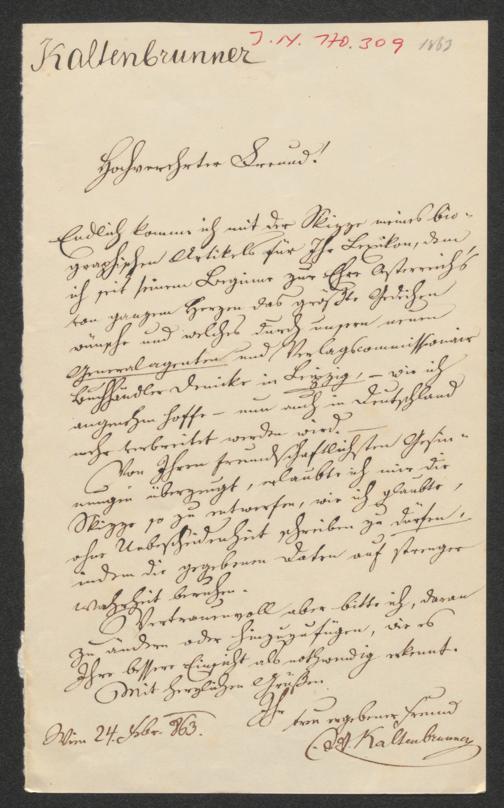 Kaltenbrunner
J. N. 170.309
1863
Hochverehrter Freund!
Endlich komme ich mit der Skizze meines bio-
graphischen Artikels für Ihr Lexikon, dem
ich seit seinem Beginne zur Ehre Österreich's
von ganzem Herzen das größte Gedeihen
wünsche und welches durch unsern neuen
Generalagenten und Verlagscommissionair
Buchhändler Denicke in Leipzig, – wie ich
angenehm hoffe – nun auch in Deutschland
mehr verbreitet werden wird. –
Von Ihren freundschaftlichsten Gesin-
nungen überzeugt, erlaubte ich mir die
Skizze so zu entwerfen, wie ich glaubte,
ohne Unbescheidenheit schreiben zu dürfen,
indem die gegebenen Daten auf strenger
Wahrheit beruhen.
Vertrauenvoll aber bitte ich, daran
zu ändern oder hinzuzufügen, wie es
Ihre bessere Einsicht als nothwendig erkennt.
Mit herzlichen Grüßen
Ihr
treu ergebener Freund
Wien 24. Febr. 863.
C. A. Kaltenbrunner